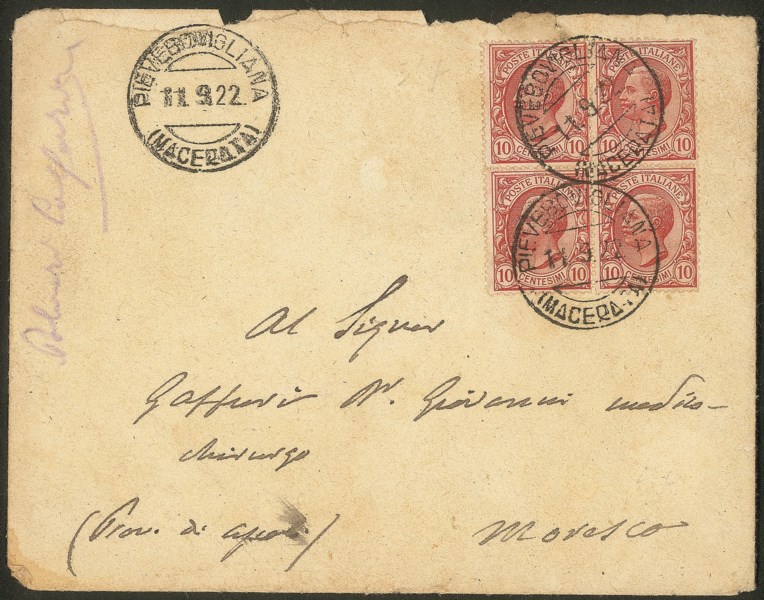 PIEVEBOVIGLIANA
11.9.22
(MACERATA)
POSTE ITALIANE POSTE ITALIANE
10 CENTESIMI 10 10 CENTESIMI 10
PIEVEBOVIGLIANA
11.9.22
(MACERATA)
POSTE ITALIANE POSTE ITALIANE
10 CENTESIMI 10 10 CENTESIMI 10
PIEVEBOVIGLIANA
11.9.22
(MACERATA)
Al Signor
Gaffuri Dr. Giovanni medico-
chirurgo
(Prov. di Ascoli) Moresco